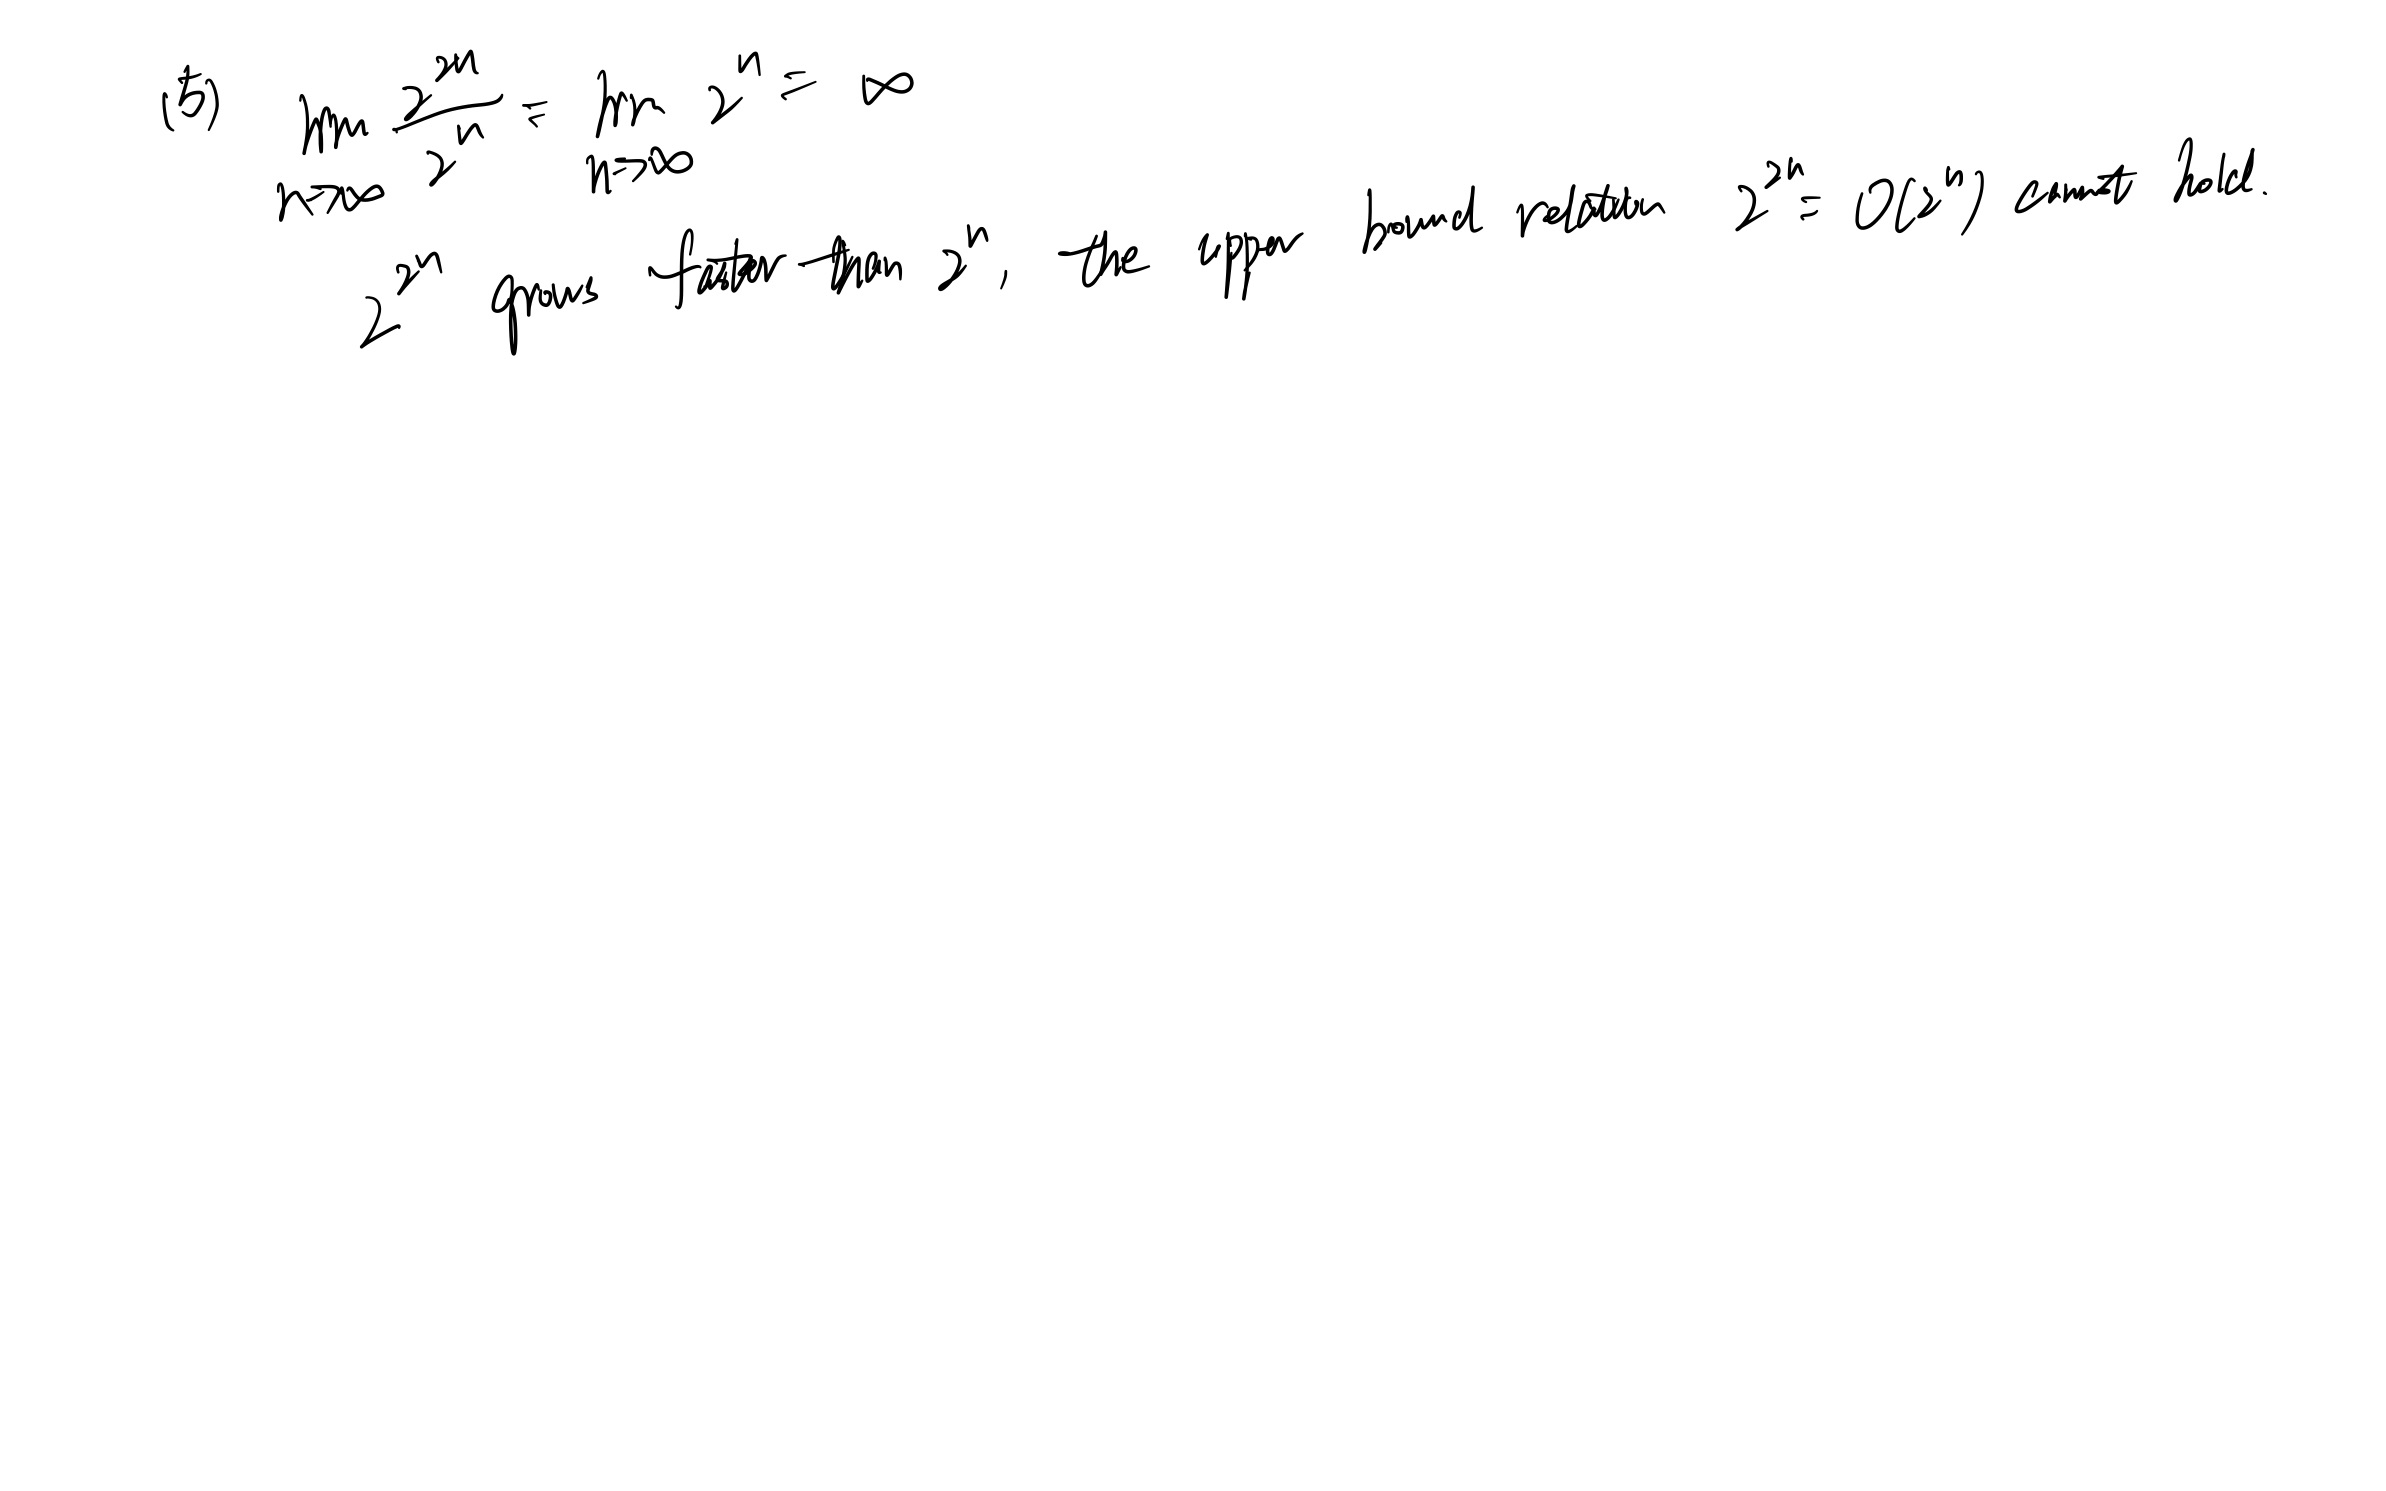 (b) lim n→∞ 2^{2n} / 2^n = lim n→∞ 2^n = ∞
2^{2n} grows faster than 2^n, the upper bound relation 2^{2n} = O(2^n) cannot hold.